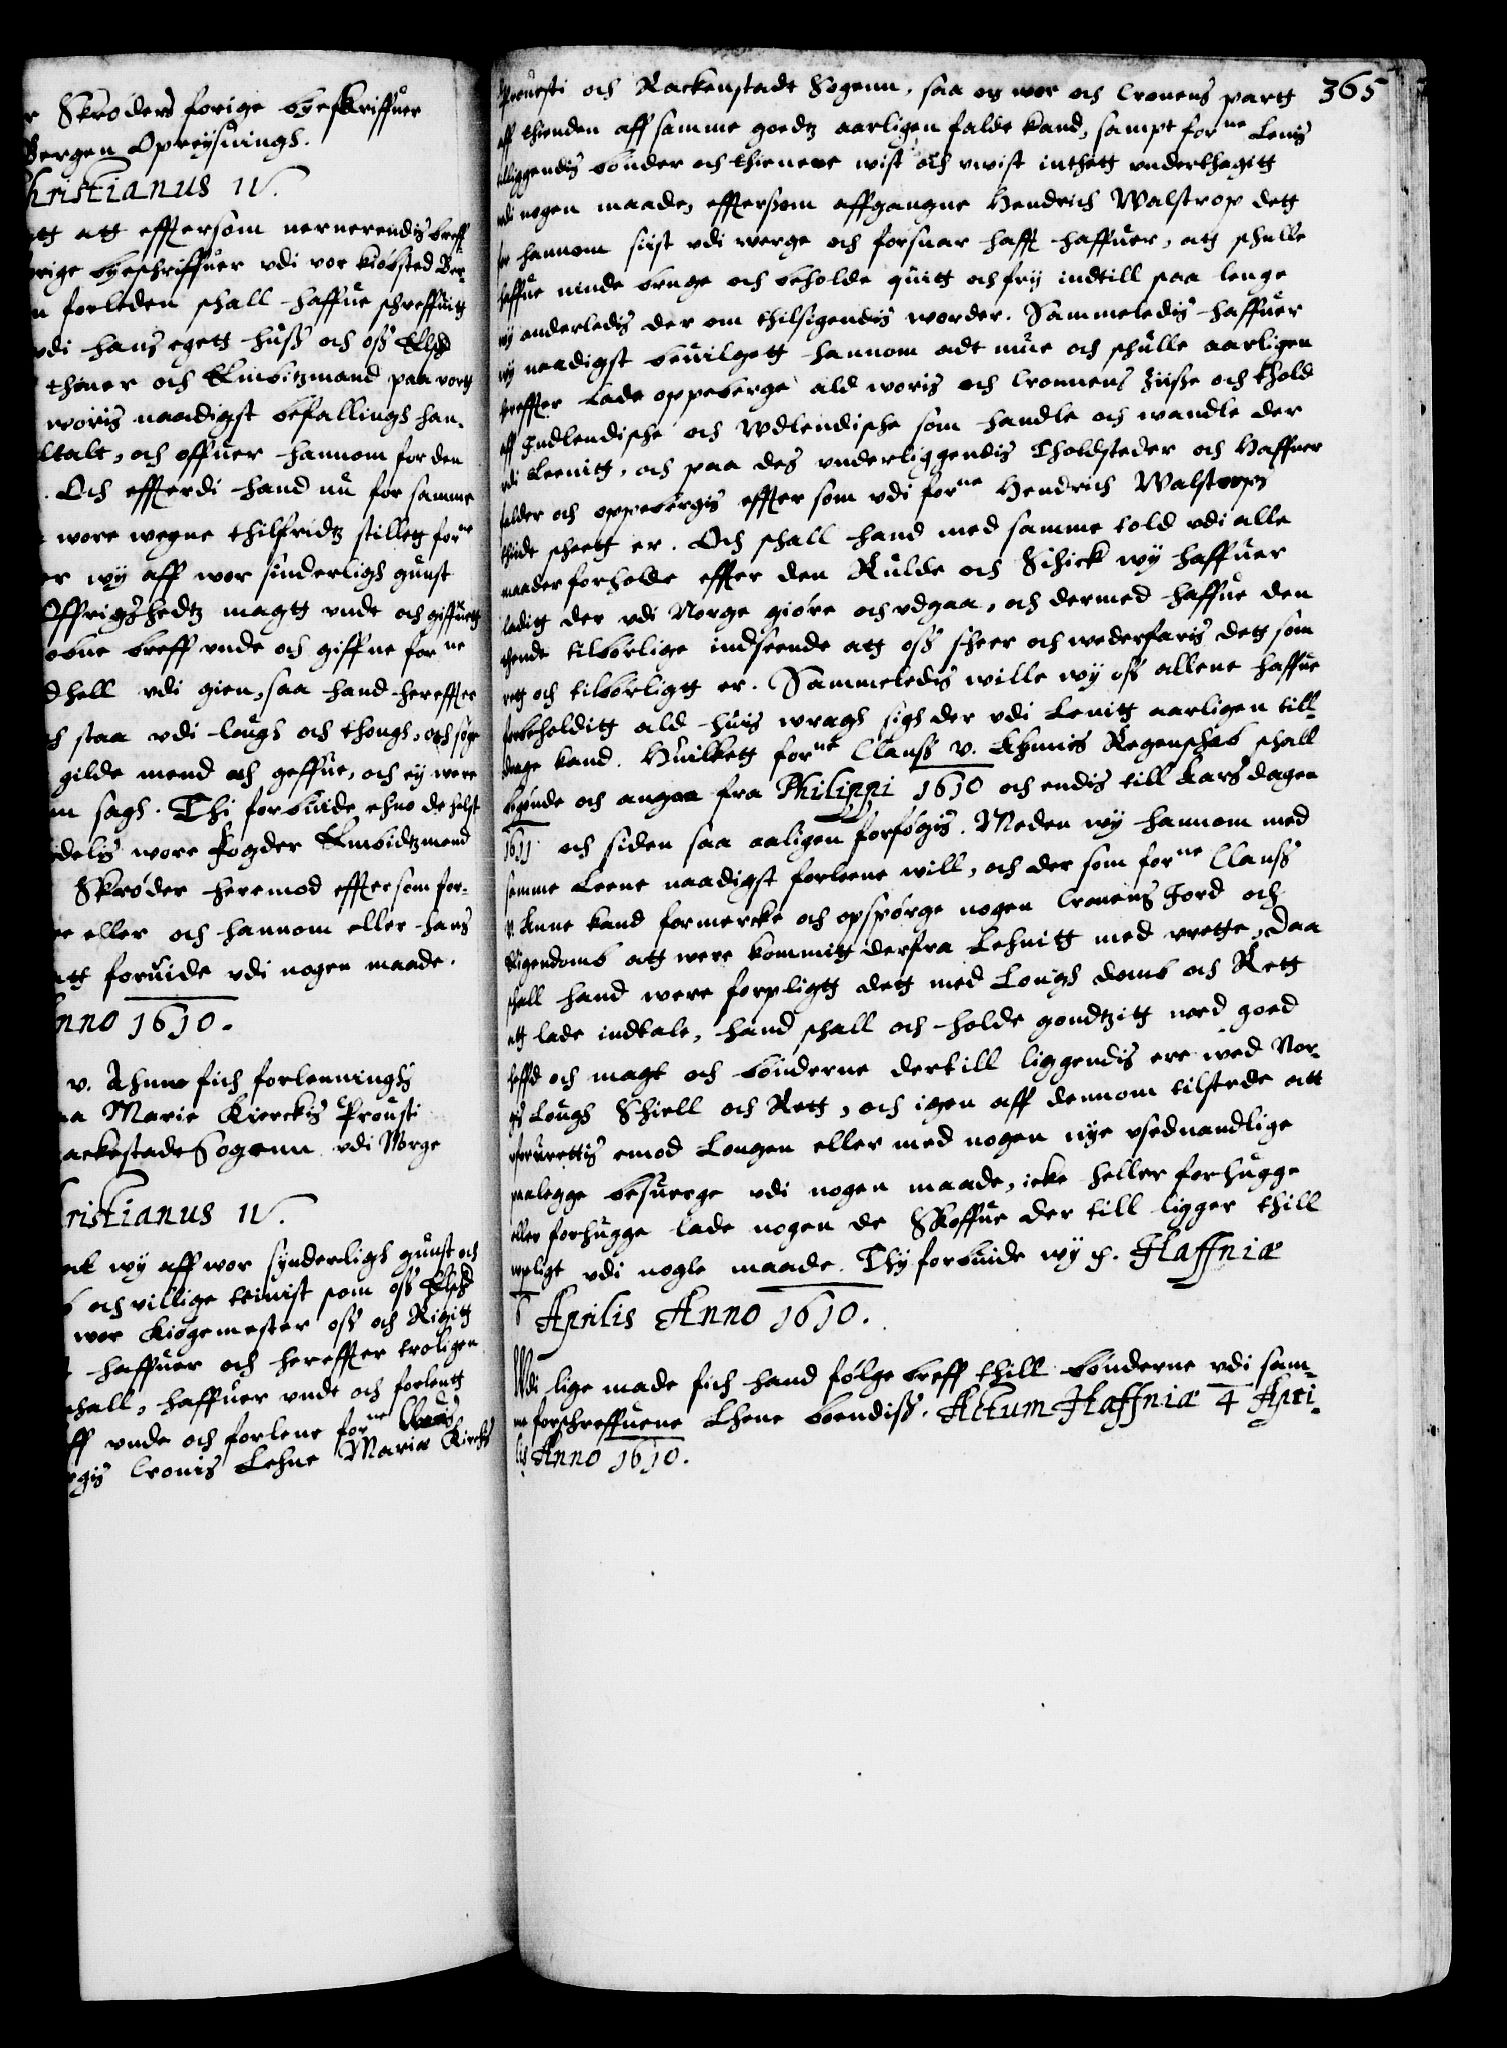 Skrøders forige byeskriffuer
Bergen Opreysnings.
Christianus IV.
att effttersom nerverendis breff
byeschriffuer vdi vor kiøbsted Ber-
forleden schall haffue schreffuitt
vdi hans egett huss och oss Elsk
thiener och Embitzmand paa vortt
woris naadigst befallings han-
talt, och offuer hannom for den
Och effterdi hand nu for samme
wore wegne thilfridtz stillett forne
wy aff wor sinderlighs gunst
Offrigshedtz magtt vnde och giffuett
obne breff vnde och giffue forne
vdi gien, saa hand hereffter
staa vdi lough och thongh, och søge
gilde mend och geffue, och ey were
sagh. Thi forbiude ehuo de helst
wore Fogder Embidtzmend
Skrøder heremod efftersom for-
eller och hannom eller hans
att foruide vdi nogen maade.
Anno 1610.
v. Ahnne fich forlenningh
Marie Kierckis Prousti
Rackestade Sogenn vdi Norge
Christianus IV.
att wy aff wor synderligh gunst och
och villige tienist som oss Elsk
wor Kiøgemester oss och Rigitt
haffuer och hereffter troligen
schall, haffuer vndt och forlentt
vnde och forlene forne Clauss
Cronis Lehne Mariæ Kierckis
365
Prouesti och Rackenstadt Sogenn, saa og wor och Cronens partt
aff thienden aff samme goedtz aarligen falde kand, sampt forne Lenis
tilliggendis bønder och thienere wist och vwist inthett vnderthagitt
vdi nogen maade, effttersom affgangne Hendrich Walstrop dett
før hannom siist vdi werge och forsuar hafft haffuer, att schulle
haffue niude bruge och beholde quitt och frij indtill saa lenge
wy anderledis der om thilsigendis worder. Sammeledis haffuer
wy naadigst beuilgett hannom adt mue och schulle aarligen
hereffter Lade oppeberge ald woris och Cronnens Züsse och thold
aff Indlendische och Wdlendische som handle och wandle der
vdi Leenitt, och paa des vnderliggendis Tholdsteder och Haffner
falder och oppebørgis effter som vdi forne Hendrich Walstrops
thiide scheett er. Och schall hand med samme told vdi alle
maader forholde effter den Rulde och Schick wy haffuer
ladit der vdi Norge giøre och vdgaa, och dermed haffue den
thende tilbørlige indseende att oss scheer och wederfaris dett som
rett och tilbørligtt er. Sammeledis wille wy oss allene haffue
forbeholditt ald huis wragh sigh der vdi Lenitt aarligen till-
drage kand. Huilkett forne Clauss v. Ahnnis Regenschab schall
begiønde och angaa fra Philippi 1610 och endis till Aarsdagen
1611 och siden saa aaligen forføgis. Meden wy hannom med
samme Leene naadigst forleene will, och der som forne Clauss
v. Anne kand formercke och opspørge nogen Cronens Jord och
Eigendomb att were kommitt derfra Lehnitt med vrette, Daa
schall hand were forpligtt dett med Lough domb och Rett
att lade indtale, hand schall och holde gondtzitt ved goed
heffd och magt och bønderne dertill liggendis ere wed Nor-
gis Lough Schiell och Rett, och igen aff dennom tilstede att
vforrettis emod Lougen eller med nogen nye vsednandlige
paalegge besuerge vdi nogen maade, icke heller forhugge
eller forhugge lade nogen de Skoffue der till ligger thill
vpligt vdi nogle maade. Thy forbiude wy p. Haffniæ
6 Aprilis Anno 1610.
Wdi lige made fich hand følge breff thill bønderne vdi sam-
me forschreffuene Lhene boendiss. Actum Haffniæ 4 Apri-
lis Anno 1610.